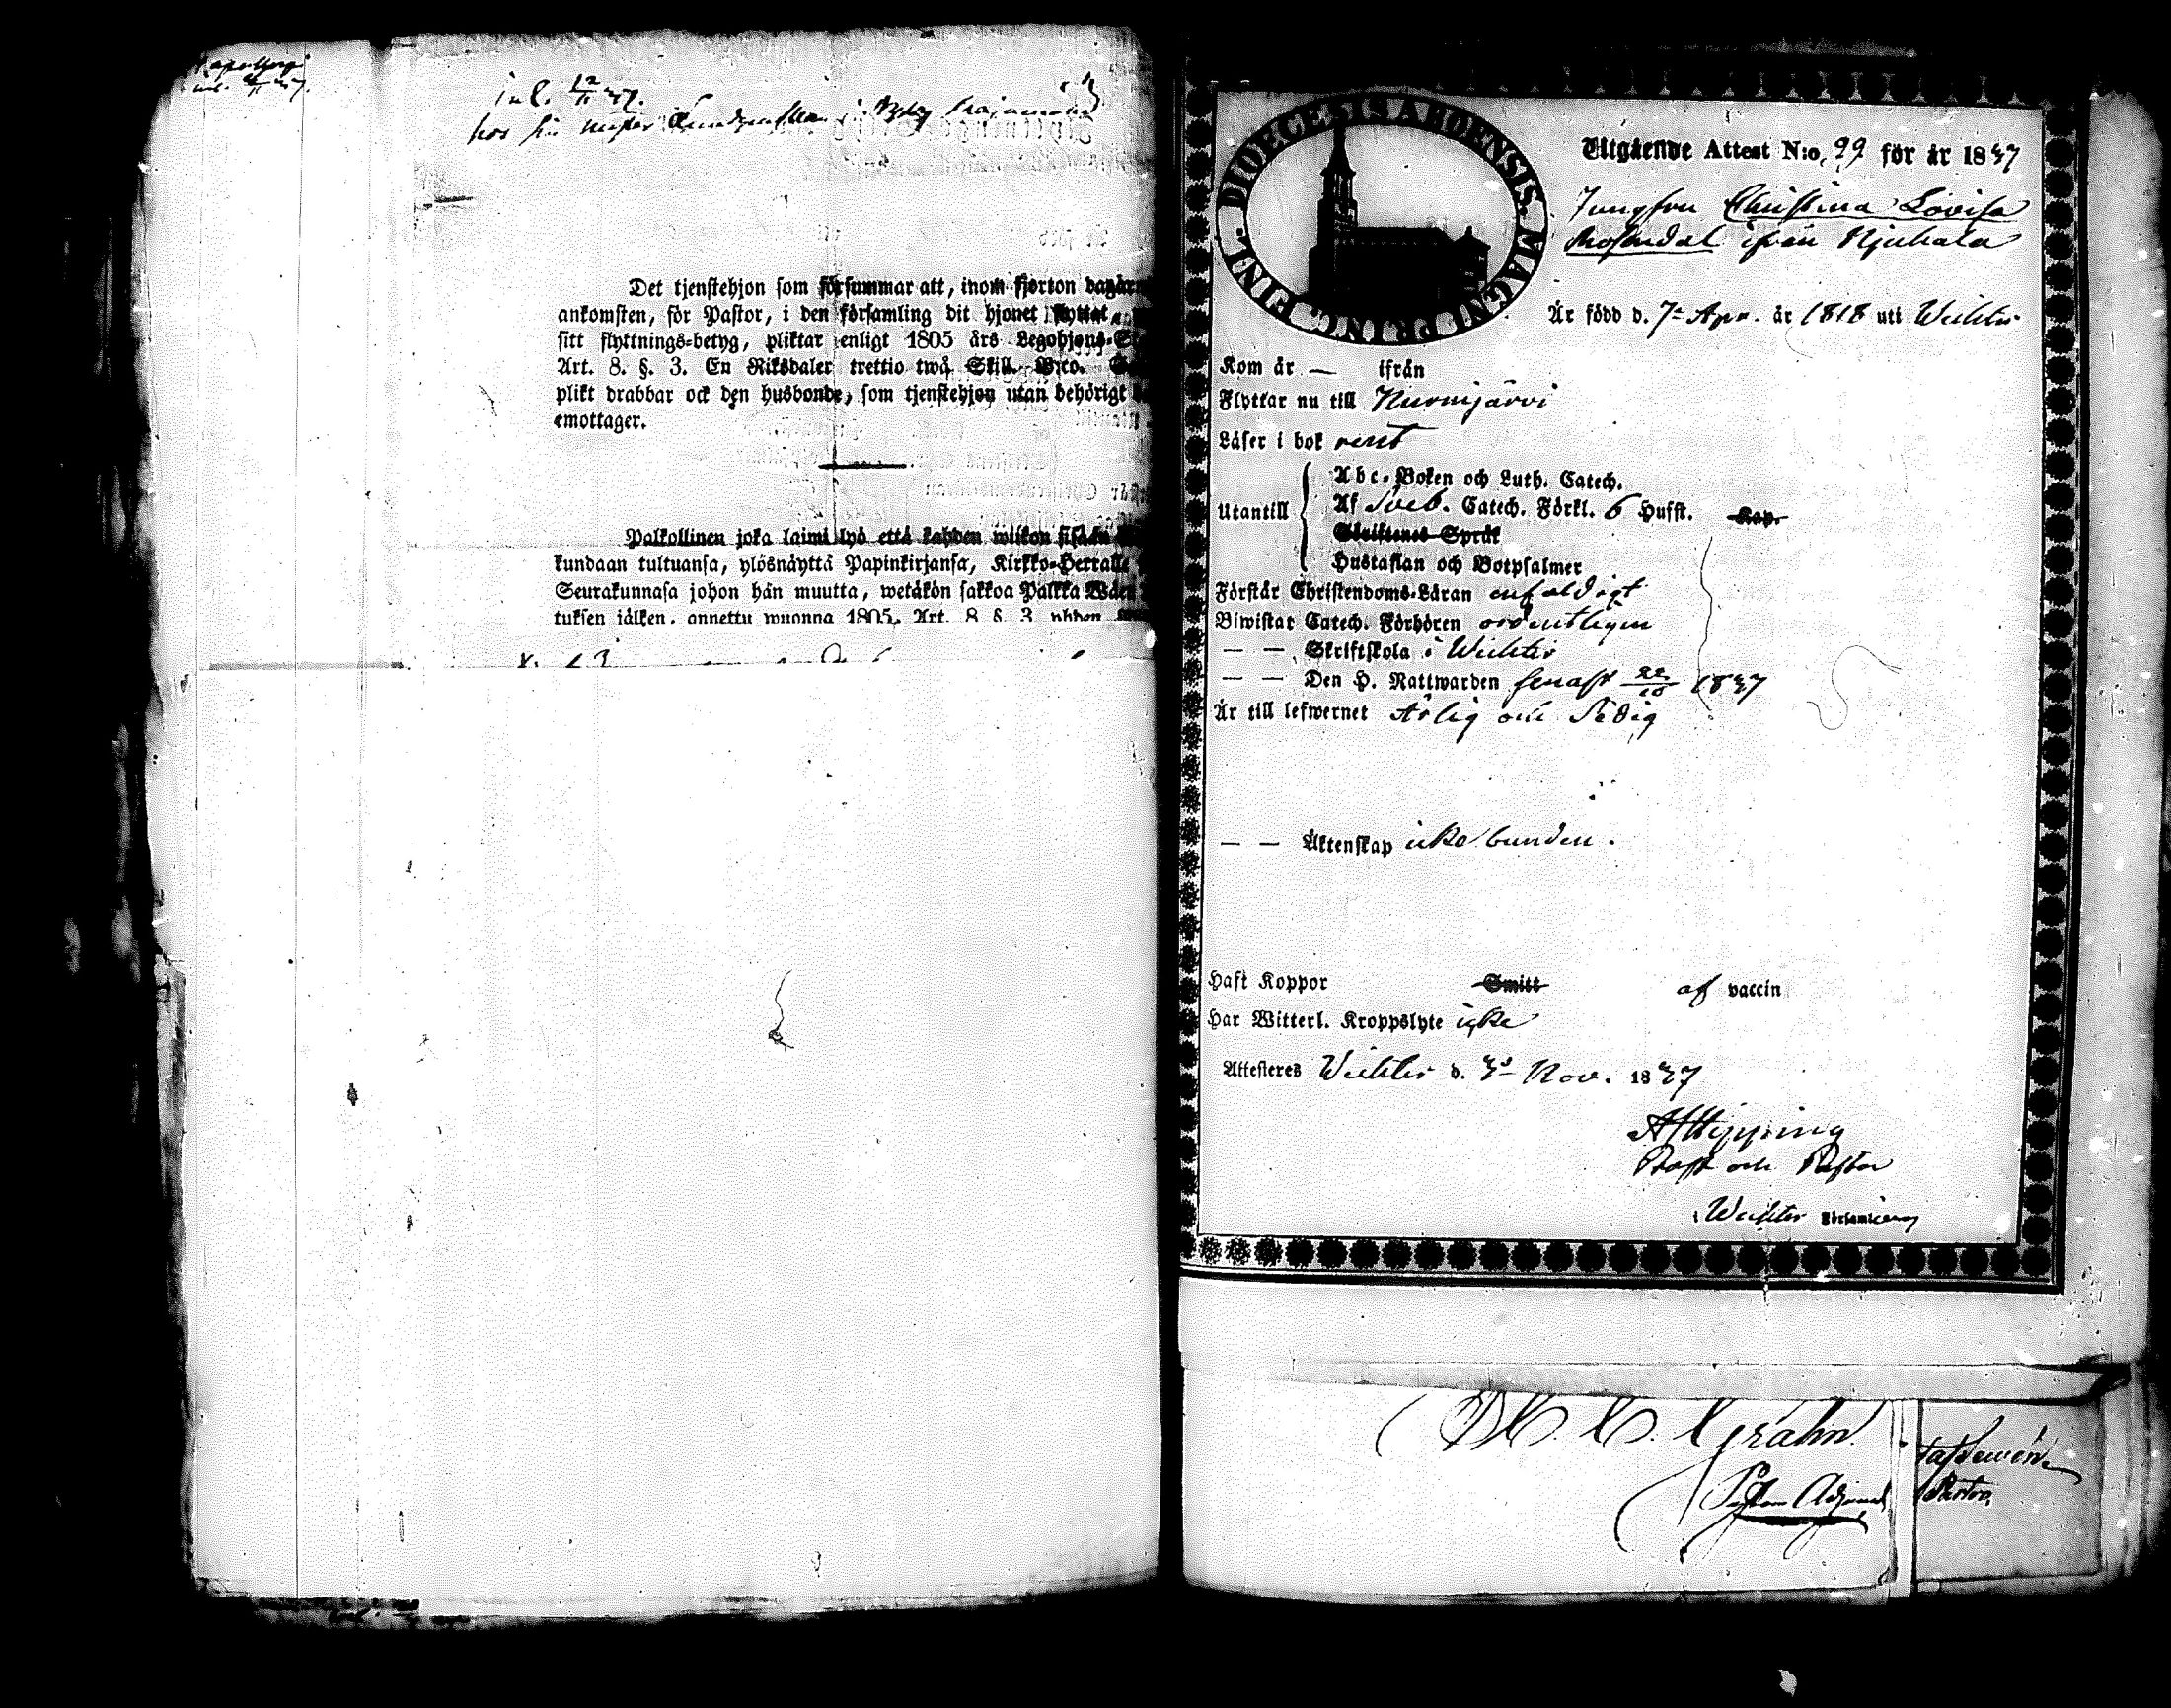 inl. 12/11 37.
hos sin
Det tjenstehjon som försummar att, inom fjorton dagar
ankomsten, för Pastor, i den församling dit hjonet flyttat,
sitt flyttnings-betyg, pliktar enligt 1805 års Legohjons-
Art. 8. §. 3. En Riksdaler trettio twå Skill. B:co.
plikt drabbar ock den husbonde, som tjenstehjon utan behörigt
emottager.
Palkollinen joka laimi lyö että kahden wiikon sisään
kundaan tultuansa, ylösnäyttä Papinkirjansa, Kirkko-Herralle
Seurakunnasa johon hän muutta, wetäkön sakkoa Palkka
tuksen jälken, annettu wuonna 1805. Art. 8 §. 3. yhden
DIOECESIS ABOENSIS. MAGNI PRINC. FINL.
Utgående Attest N:o 99 för år 1837
Jungfru Christina Lovisa
Rosendal ifrån Njuhala
Är född d. 7= Apr. år 1818 uti Wichtis
Kom år — ifrån
Flyttar nu till Nurmijärvi
Läser i bok rent
Abc-Boken och Luth. Catech.
Utantill Af Sveb. Catech. Förkl. 6 Hufst. Kap.
Skriftenes Språk
Hustaflan och Botpsalmer
Förstår Christendoms-Läran enfaldigt
Biwistar Catech. Förhören ordentligen
— — Skriftskola i Wichtis
— — Den H. Nattwarden senast 22/10 1837
Är till lefwernet Ärlig och Sedig
— — Äktenskap icke bunden.
Haft Koppor Smitt af vaccin
Har Witterl. Kroppslyte icke
Attesteres Wichtis d. 3= Nov. 1837
AJHipping
Prost och Pastor
i Wichtis Församling
Grahn.
Adjunct
Pastor